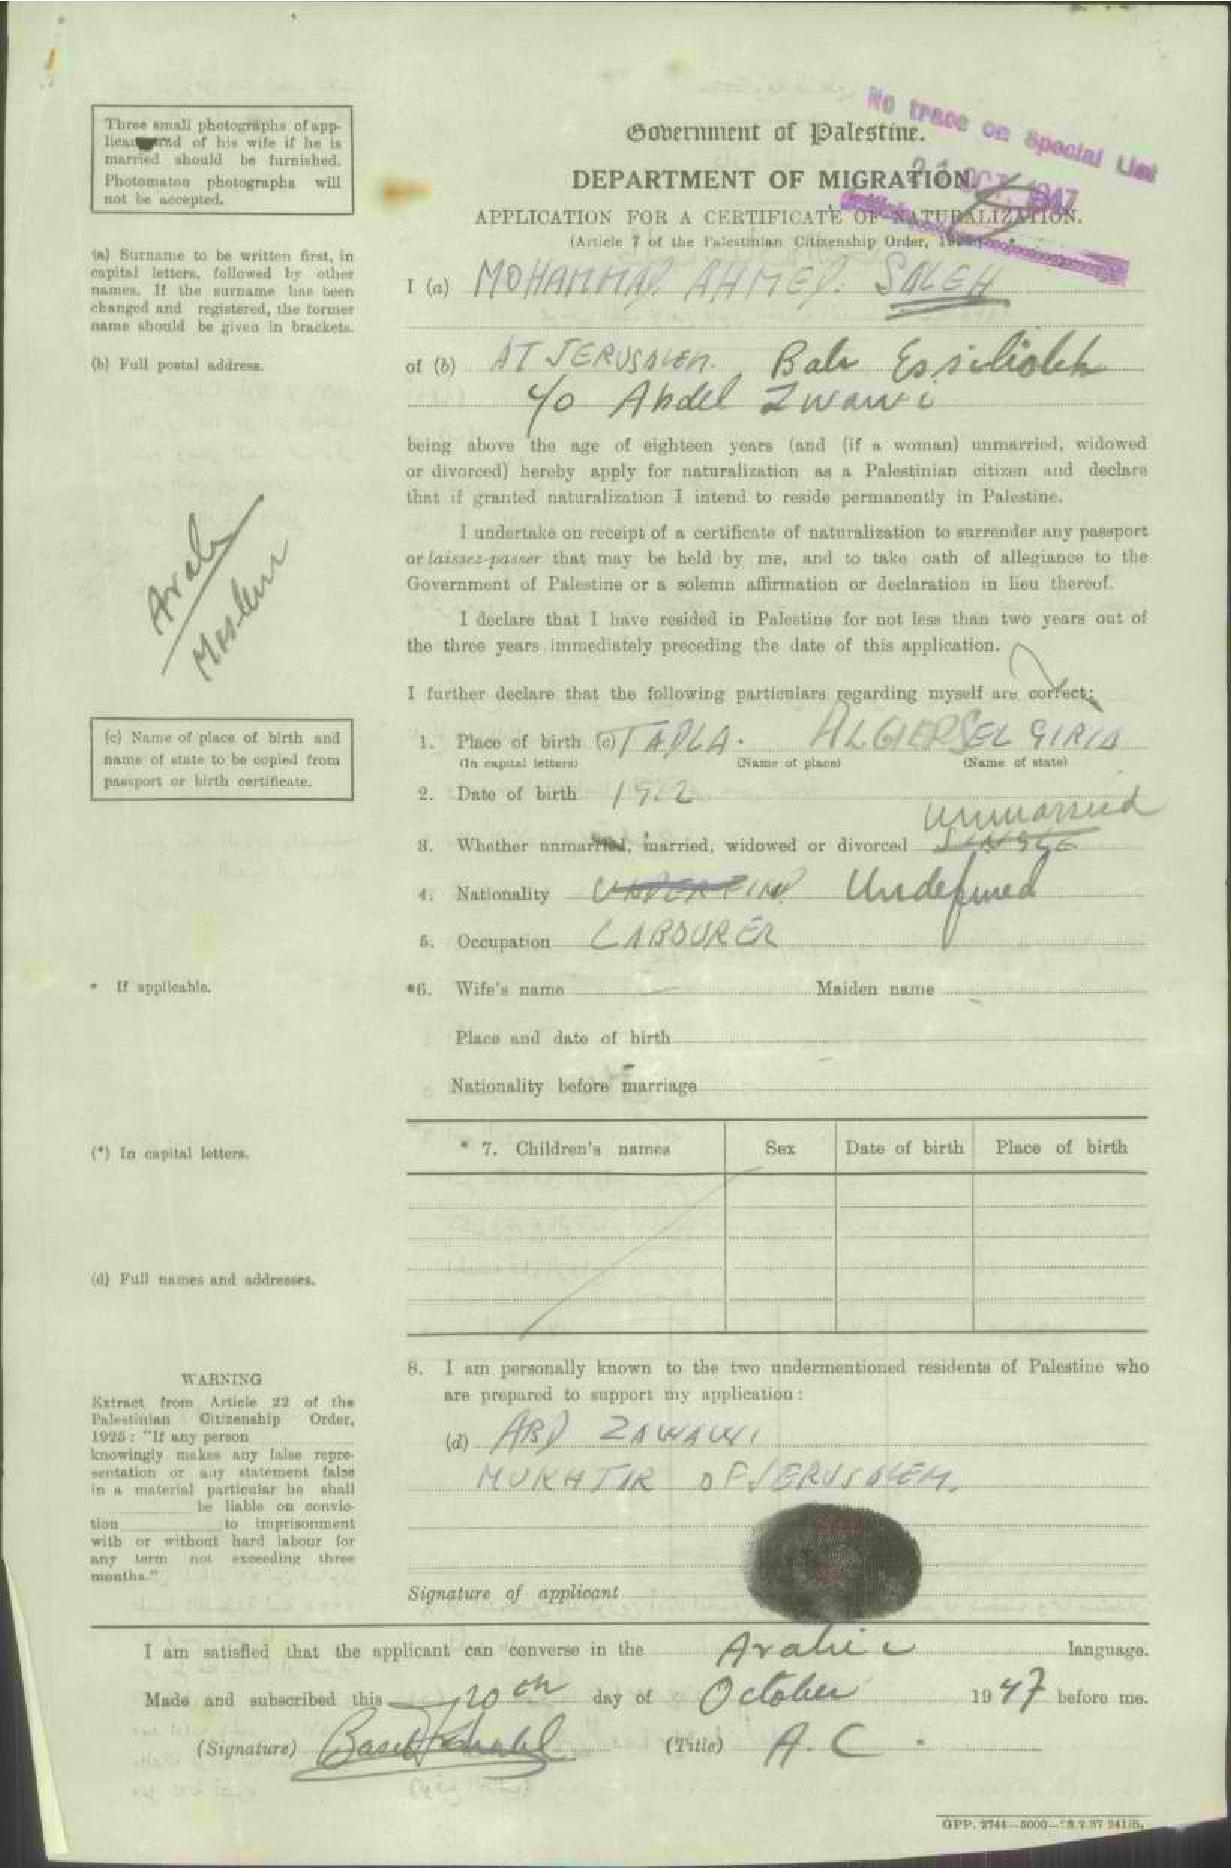 Three small photographs of app-
of his wife if he is
married should be furnished.
Photomaton photographs will
not be accepted.
Government of Palestine.
No trace on Special List
DEPARTMENT OF MIGRATION.
OCT. 1947
APPLICATION FOR A CERTIFICATE OF NATURALIZATION.
(Article 7 of the Palestinian Citizenship Order,
(a) Surname to be written first, in
capital letters, followed by other
names. If the surname has been
changed and registered, the former
name should be given in brackets.
I (a) MOHAMMAD AHMED. SALEH
(b) Full postal address.
of (b) AT JERUSALEM. Bab Essilsileh
c/o Abdel Zwawi
being above the age of eighteen years (and (if a woman) unmarried, widowed
or divorced) hereby apply for naturalization as a Palestinian citizen and declare
that if granted naturalization I intend to reside permanently in Palestine.
Arab
Moslem
I undertake on receipt of a certificate of naturalization to surrender any passport
or laissez-passer that may be held by me, and to take oath of allegiance to the
Government of Palestine or a solemn affirmation or declaration in lieu thereof.
I declare that I have resided in Palestine for not less than two years out of
the three years immediately preceding the date of this application.
I further declare that the following particulars regarding myself are correct:
(c) Name of place of birth and
name of state to be copied from
passport or birth certificate.
1. Place of birth (c) TABLA. ALGIERS EL GIRIA
(In capital letters) (Name of place) (Name of state)
2. Date of birth 1912
unmarried
3. Whether unmarried, married, widowed or divorced
4. Nationality Undefined
5. Occupation LABOURER
* If applicable.
*6. Wife's name Maiden name
Place and date of birth
Nationality before marriage
(*) In capital letters.
* 7. Children's names Sex Date of birth Place of birth
(d) Full names and addresses.
8. I am personally known to the two undermentioned residents of Palestine who
are prepared to support my application:
(d) ABD ZAWAWI
MUKHTIR OF JERUSALEM.
WARNING
Extract from Article 22 of the
Palestinian Citizenship Order,
1925: "If any person
knowingly makes any false repre-
sentation or any statement false
in a material particular he shall
be liable on convic-
tion to imprisonment
with or without hard labour for
any term not exceeding three
months."
Signature of applicant
I am satisfied that the applicant can converse in the Arabic language.
Made and subscribed this 20th day of October 1947 before me.
(Signature) (Title) A.C.